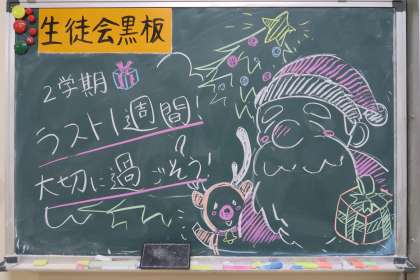 生徒会黒板
2学期
ラスト1週間!
大切に過ごそう!